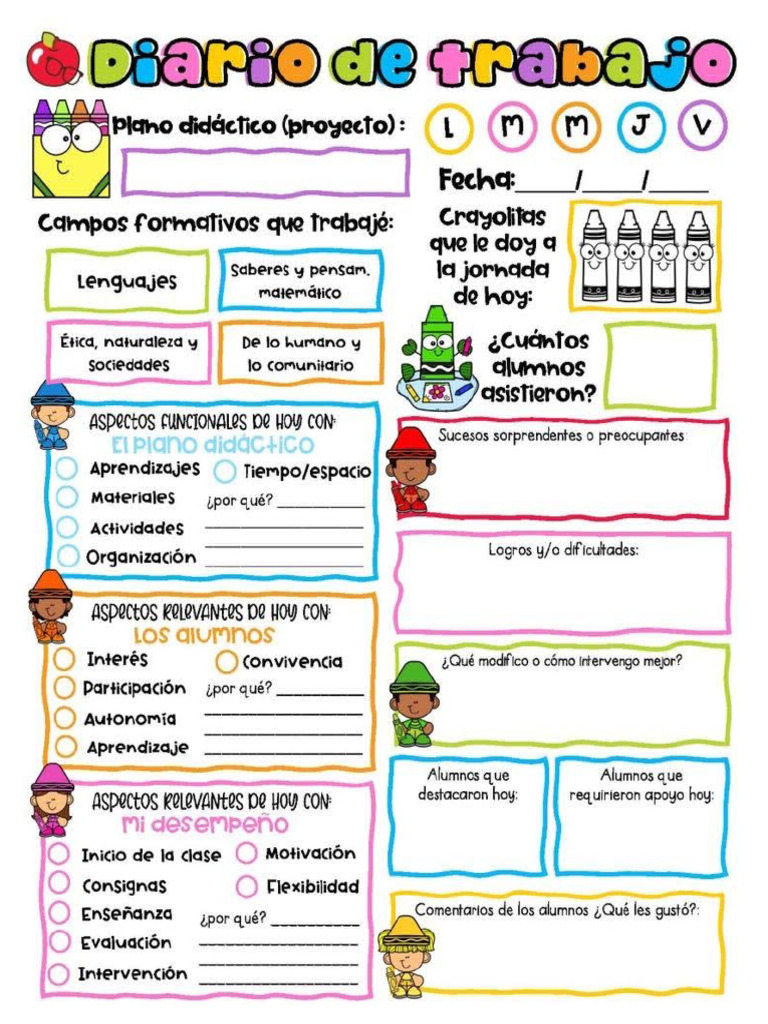 Diario de trabajo
Plano didáctico (proyecto) :
L M M J V
Fecha:_____/_____/_____
Campos formativos que trabajé:
Lenguajes
Saberes y pensam.
matemático
Ética, naturaleza y
sociedades
De lo humano y
lo comunitario
Crayolitas
que le doy a
la jornada
de hoy:
¿Cuántos
alumnos
asistieron?
Aspectos funcionales de hoy con:
El plano didáctico
Aprendizajes
Tiempo/espacio
Materiales
¿por qué? __________
Actividades
Organización
Aspectos relevantes de hoy con:
Los alumnos
Interés
Convivencia
Participación
¿por qué? __________
Autonomía
Aprendizaje
Aspectos relevantes de hoy con:
Mi desempeño
Inicio de la clase
Motivación
Consignas
Flexibilidad
Enseñanza
¿por qué? __________
Evaluación
Intervención
Sucesos sorprendentes o preocupantes:
Logros y/o dificultades:
¿Qué modifico o cómo intervengo mejor?
Alumnos que
destacaron hoy:
Alumnos que
requirieron apoyo hoy:
Comentarios de los alumnos ¿Qué les gustó?: